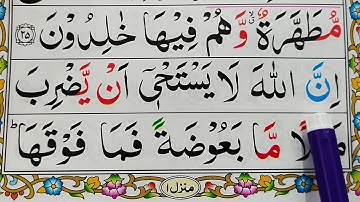 مُّطَهَّرَةٌ وَّهُمْ فِيهَا خٰلِدُوْنَ ﴿٢٥﴾
اِنَّ اللّٰهَ لَا يَسْتَحْيٖۤ اَنْ يَّضْرِبَ
مَثَلًا مَّا بَعُوْضَةً فَمَا فَوْقَهَا ؕ
منزل ١